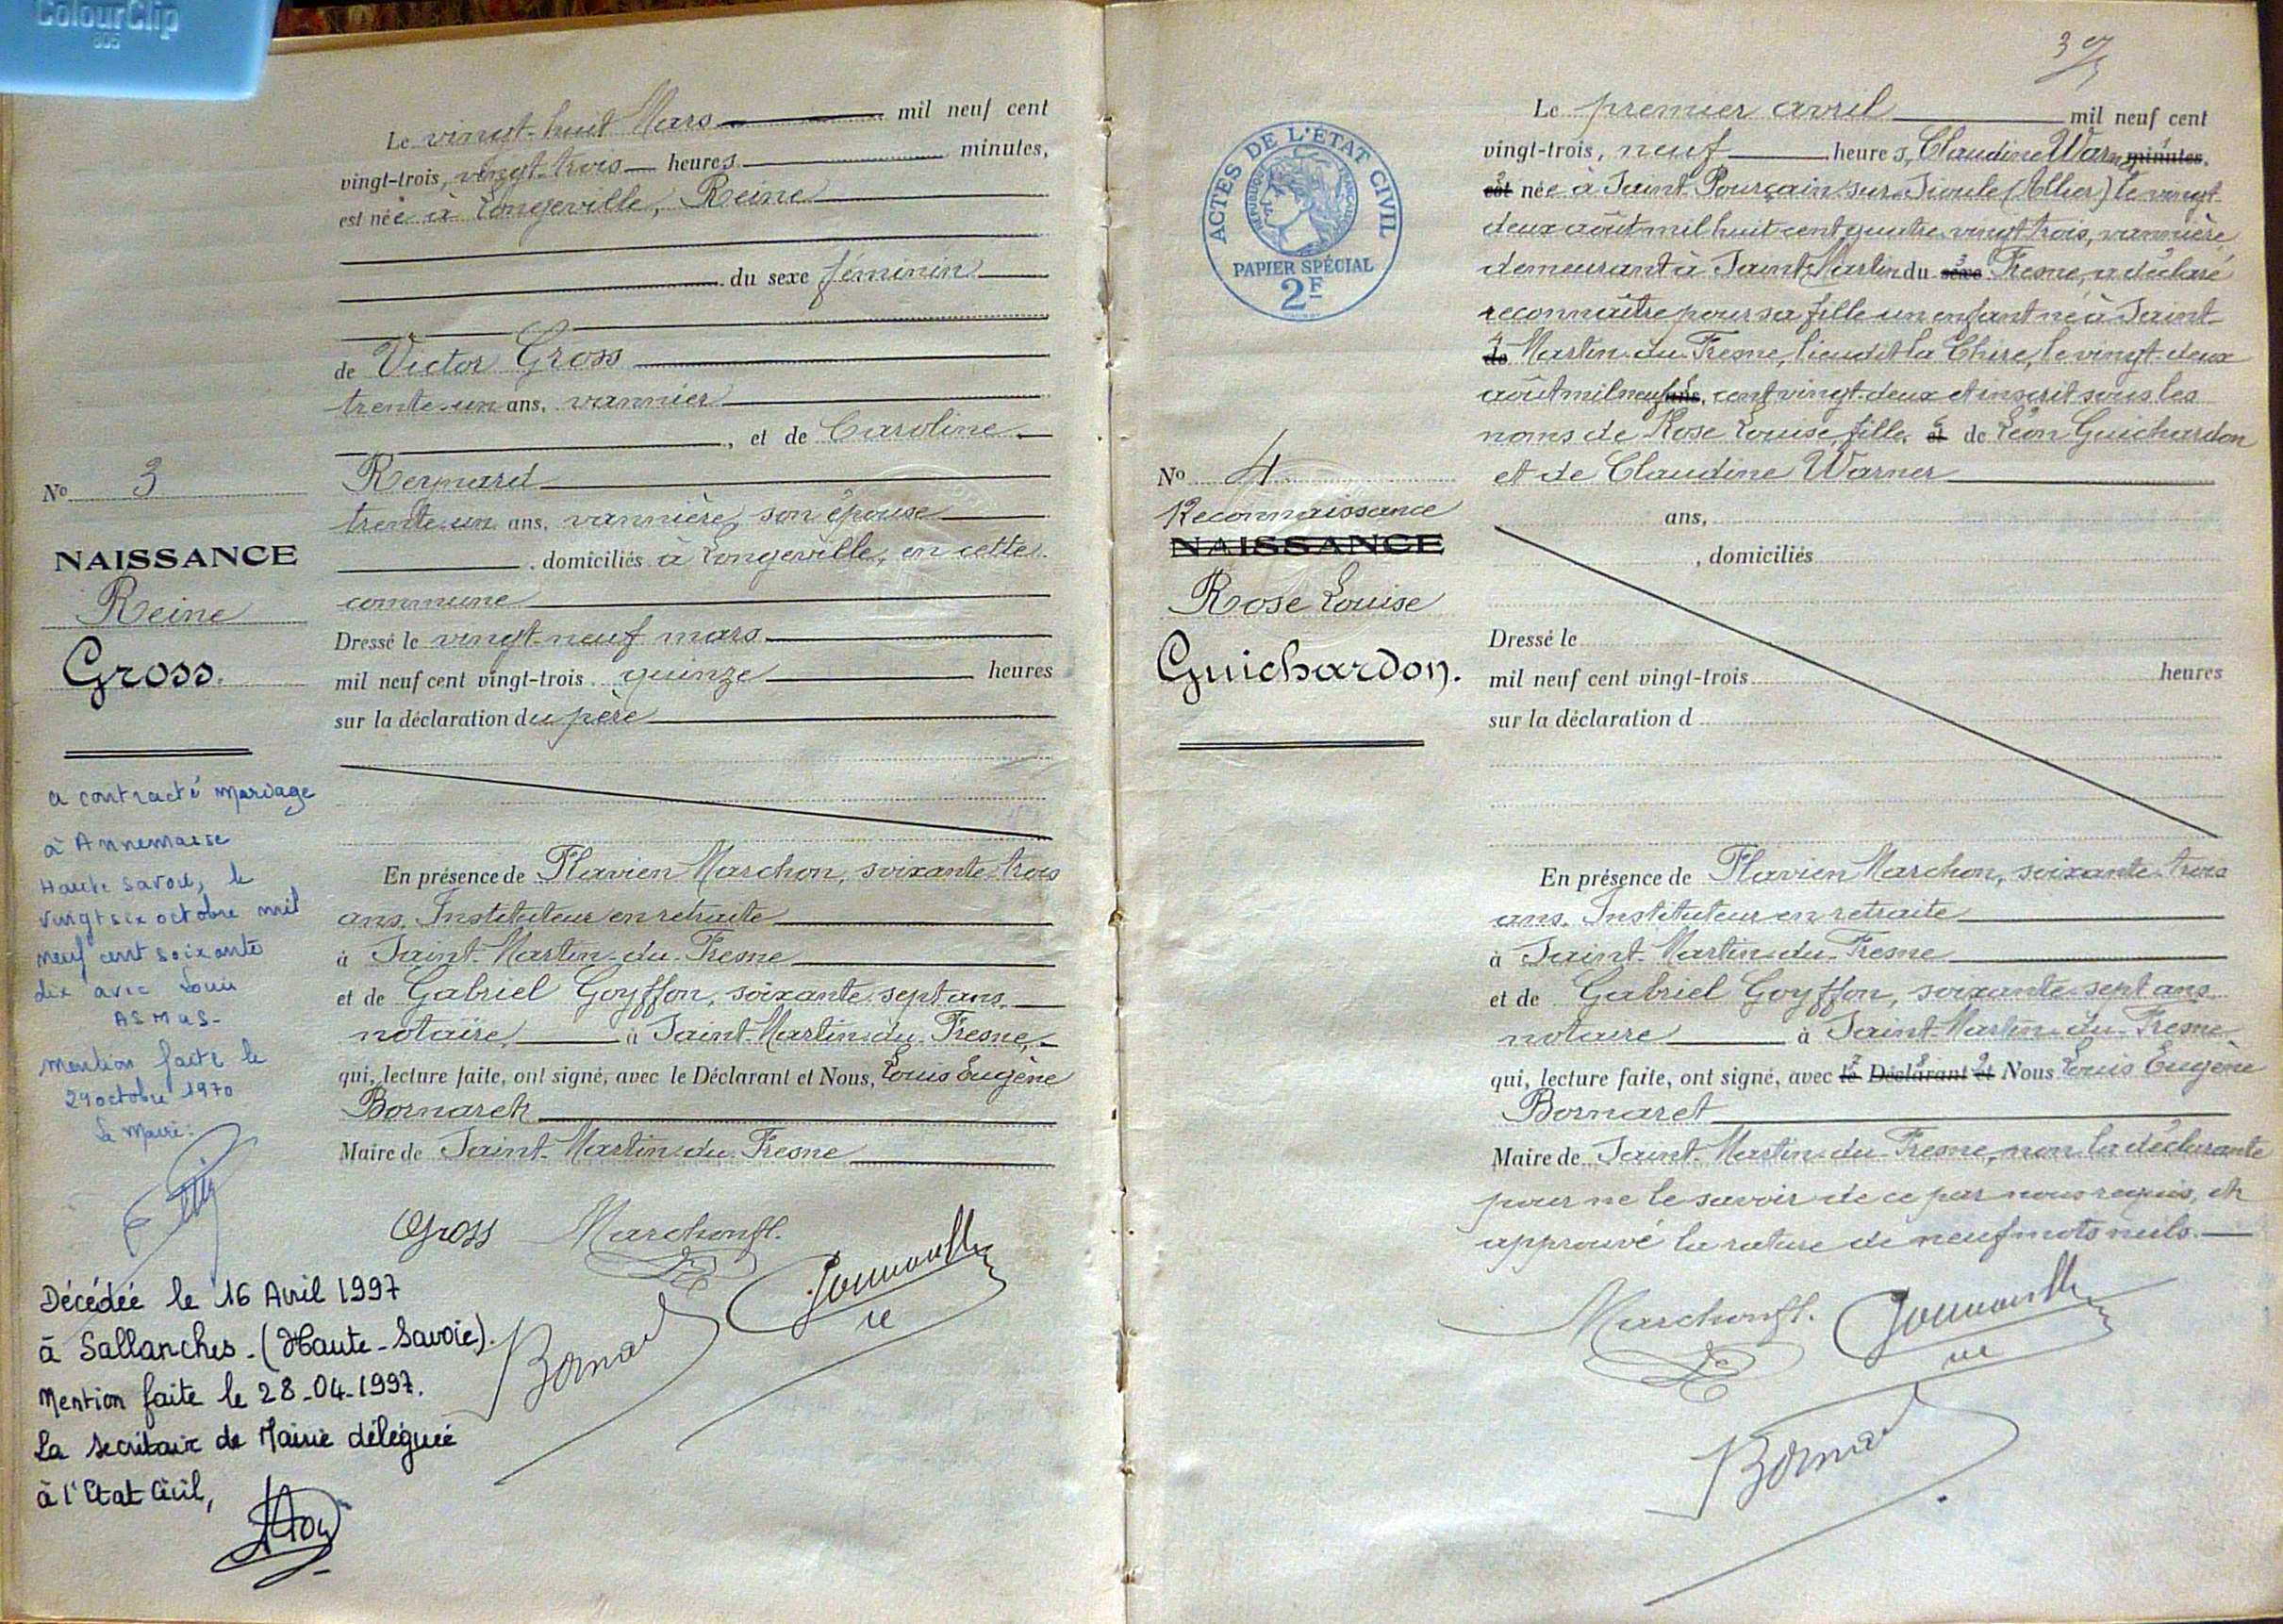 ColourClip
805
Le vingt-huit Mars mil neuf cent
vingt-trois, vingt-trois heures minutes,
est née à Longeville, Reine
du sexe féminin
de Victor Gross
trente-un ans, vannier
, et de Caroline
Reynard
trente-un ans, vannière, son épouse
, domiciliés à Longeville, en cette
commune
Dressé le vingt-neuf mars
mil neuf cent vingt-trois quinze heures
sur la déclaration du père
En présence de Flavien Marchon, soixante-trois
ans, Instituteur en retraite
à Saint-Martin-du-Fresne
et de Gabriel Goyffon, soixante-sept ans,
notaire, à Saint-Martin-du-Fresne,
qui, lecture faite, ont signé, avec le Déclarant et Nous, Louis Eugène
Bornaret
Maire de Saint-Martin-du-Fresne
Gross Marchon fl.
Bornaret
No 3
NAISSANCE
Reine
Gross.
a contracté mariage
à Annemasse
Haute Savoie, le
vingt six octobre mil
neuf cent soixante
dix avec Louis
ASMUS-
Mention faite le
29 octobre 1970
Le Maire:
Décédée le 16 Avril 1997
à Sallanches - (Haute-Savoie).
Mention faite le 28-04-1997.
La secrétaire de Mairie déléguée
à l'Etat Civil,
3
ACTES DE L'ÉTAT CIVIL
RÉPUBLIQUE FRANÇAISE
PAPIER SPÉCIAL
2F
Le premier avril mil neuf cent
vingt-trois, neuf heures, Claudine Warner minutes,
est née à Saint-Pourçain-sur-Sioule (Allier) le vingt-
deux août mil huit cent quatre-vingt-trois, vannière
demeurant à Saint-Martin du sexe Fresne, a déclaré
reconnaître pour sa fille un enfant né à Saint-
de Martin-du-Fresne, lieu dit la Chire, le vingt-deux
août mil neuf ans, cent vingt-deux et inscrit sous les
noms de Rose Louise, fille, et de Léon Guichardon
et de Claudine Warner
ans,
, domiciliés
Dressé le
mil neuf cent vingt-trois heures
sur la déclaration d
En présence de Flavien Marchon, soixante-trois
ans, Instituteur en retraite
à Saint-Martin-du-Fresne
et de Gabriel Goyffon, soixante-sept ans
notaire à Saint-Martin-du-Fresne
qui, lecture faite, ont signé, avec le Déclarant et Nous Louis Eugène
Bornaret
Maire de Saint-Martin-du-Fresne, non la déclarante
pour ne le savoir de ce par nous requis, et
approuvé la rature de neuf mots nuls.
Marchon fl.
Bornaret
No 4
Reconnaissance
NAISSANCE
Rose Louise
Guichardon.